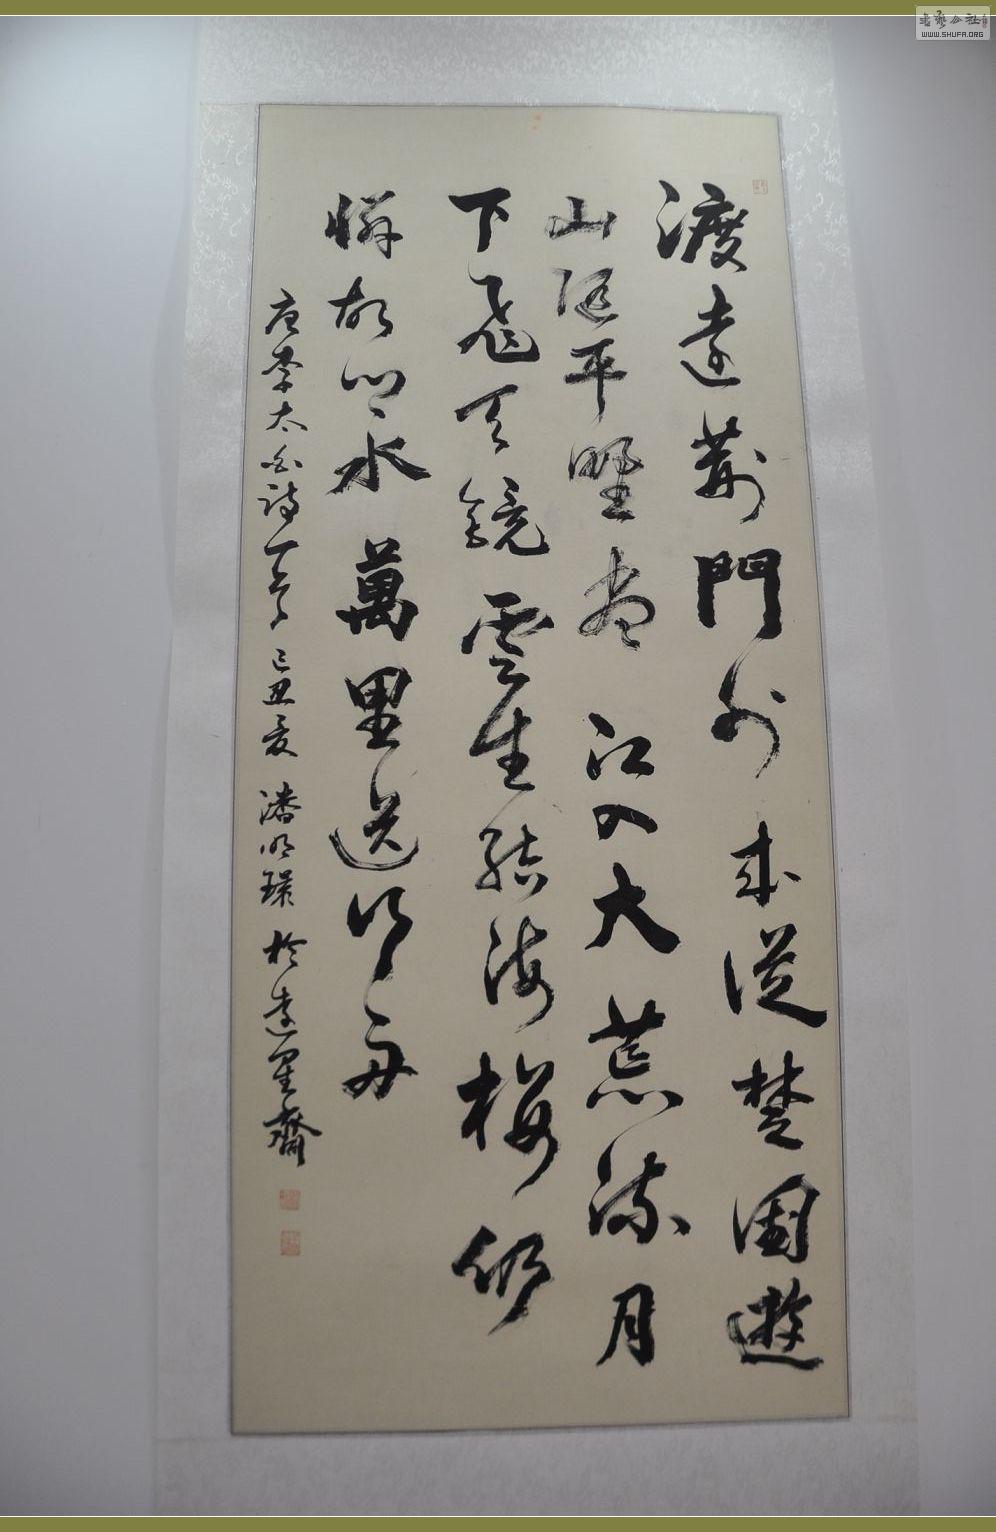 渡遠荊門外來從楚國遊
山隨平野盡江入大荒流月
下飛天鏡雲生結海樓仍
憐故鄉水萬里送行舟
唐李太白詩一首己丑夏潘明環於遠星齋
書藝公社
WWW.SHUFA.ORG